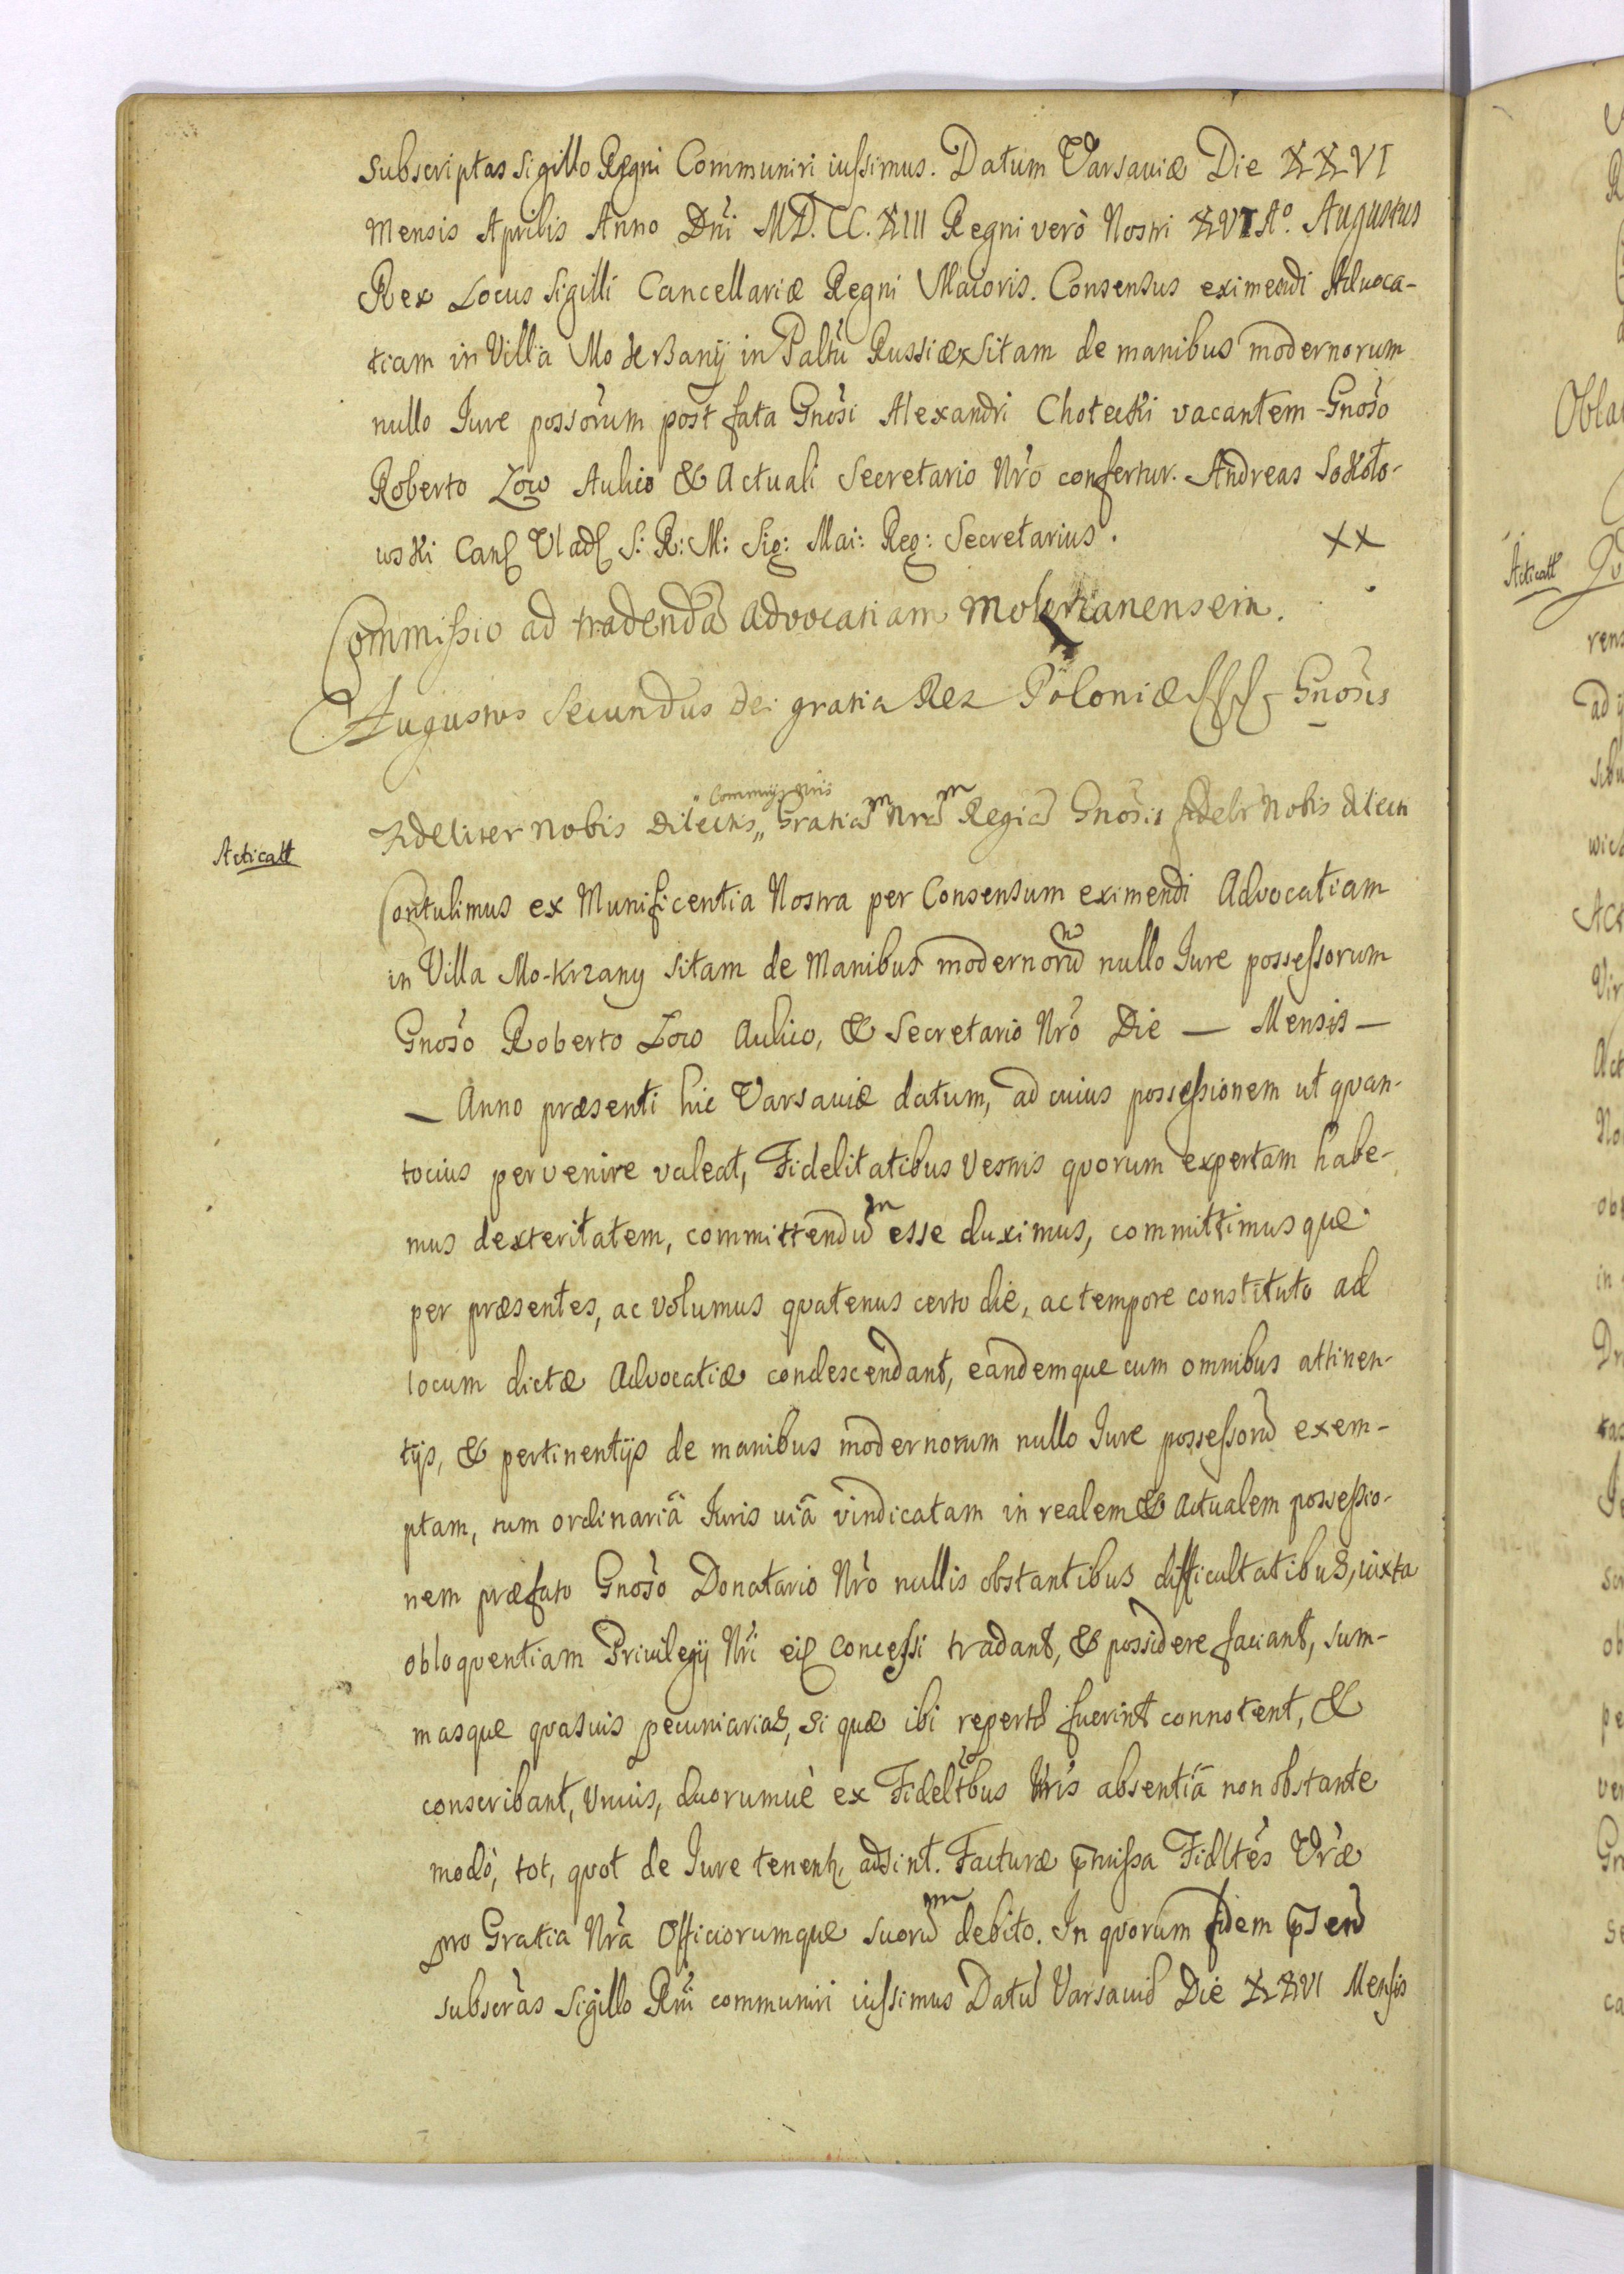 Subscriptas Sigillo Regni Communiri iussimus. Datum Varsaviæ Die XXVI
Mensis Aprilis Anno Dñi MD.CC.XIII Regni verò Nostri XVI Aº. Augustus
Rex Locus Sigilli Cancellariæ Regni Maioris. Consensus eximendi Advoca-
tiam in Villa Mokrzanÿ in Paltu Russiæ Sitam de manibus modernorum
nullo Iure possorum post fata Gnosi Alexandri Chotecki vacantem Gnoso
Roberto Low Aulico & Actuali Secretario Nro confertur. Andreas Sokoło-
wski Canc Vlad S: R: M: Sig: Mai: Reg: Secretarius. XX
Commissio ad tradendã Advocatiam Mokrzanensem.
Augustus Secundus Dei gratia Rex Poloniæ Gnosis
Acticatt
Fideliter Nobis Dilectis Gratiam Nram Regiã Gnosis fidelr Nobis dilecti
Contulimus ex Munificentia Nostra per Consensum eximendi Advocatiam
in Villa Mo-krzany sitam de Manibus modernorũ nullo Iure possessorum
Gnoso Roberto Low Aulico, & Secretario Nro Die — Mensis —
— Anno præsenti hic Varsaviæ datum, ad cuius possessionem ut quan-
tocius pervenire valeat, Fidelitatibus Vestris quorum expertam habe-
mus dexteritatem, committendũm esse duximus, committimusque
per præsentes, ac volumus quatenus certo die, ac tempore constituto ad
locum dictæ Advocatiæ condescendant, eandemque cum omnibus attinen-
tÿs, & pertinentÿs de manibus modernorum nullo Iure possessorũ exem-
ptam, tum ordinariâ Iuris viâ vindicatam in realem & actualem possessio-
nem præfato Gnoso Donatario Nro nullis obstantibus difficultatibus, iuxta
obloquentiam Privilegÿ Nri eiq Concessi tradant, & possidere faciant, sum-
masque quasvis pecuniarias, si quæ ibi repertæ fuerint connotent, &
conscribant, Unius, duorumvè ex Fideltbus Vris absentiâ non obstante
modò, tot, quot de Iure tenent, adsint. Facturæ pmissa Fidltes Vræ
pro Gratia Nra Officiorumque suorũm debito. In quorum fidem psen
subscras Sigillo Rni communiri iussimus Datũ Varsaviæ Die XXVI Mensis